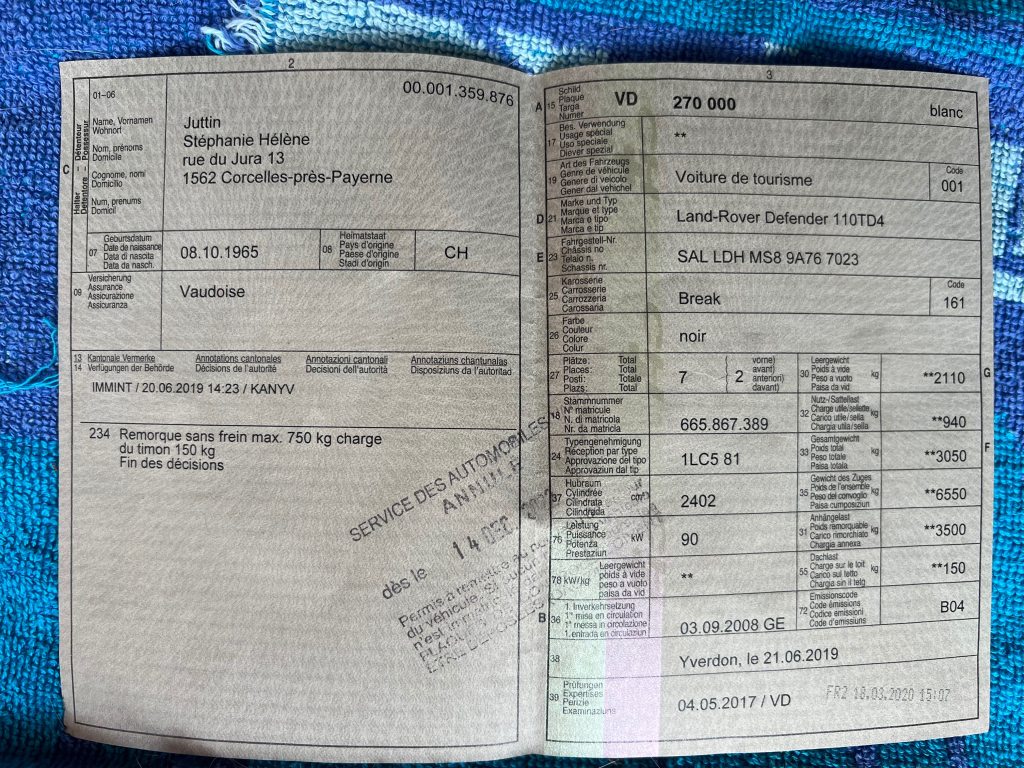 2
01–06
00.001.359.876
C
Halter Détenteur
Detentore Possessur
Name, Vornamen
Wohnort
Nom, prénoms
Domicile
Cognome, nomi
Domicilio
Num, prenums
Domicil
Juttin
Stéphanie Hélène
rue du Jura 13
1562 Corcelles-près-Payerne
07
Geburtsdatum
Date de naissance
Data di nascita
Data da nasch.
08.10.1965
08
Heimatstaat
Pays d'origine
Paese d'origine
Stadi d'origin
CH
09
Versicherung
Assurance
Assicurazione
Assicuranza
Vaudoise
13
14
Kantonale Vermerke
Verfügungen der Behörde
Annotations cantonales
Décisions de l'autorité
Annotazioni cantonali
Decisioni dell'autorità
Annotaziuns chantunalas
Disposiziuns da l'autoritad
IMMINT / 20.06.2019 14:23 / KANYV
234 Remorque sans frein max. 750 kg charge
du timon 150 kg
Fin des décisions
SERVICE DES AUTOMOBILES
ANNULÉ
dès le 14 DEC
Permis à remettre au
du véhicule, si aucun
n'est
3
A
15
Schild
Plaque
Targa
Numer
VD
270 000
blanc
17
Bes. Verwendung
Usage spécial
Uso speciale
Diever spezial
**
19
Art des Fahrzeugs
Genre de véhicule
Genere di veicolo
Gener dal vehichel
Voiture de tourisme
Code
001
D
21
Marke und Typ
Marque et type
Marca e tipo
Marca e tip
Land-Rover Defender 110TD4
E
23
Fahrgestell-Nr.
Châssis no
Telaio n.
Schassis nr.
SAL LDH MS8 9A76 7023
25
Karosserie
Carrosserie
Carrozzeria
Carossaria
Break
Code
161
26
Farbe
Couleur
Colore
Colur
noir
27
Plätze: Total
Places: Total
Posti: Totale
Plazs: Total
7
2
vorne)
avant)
anteriori)
davant)
30
Leergewicht
Poids à vide
Peso a vuoto
Paisa da vid
kg
**2110
G
18
Stammnummer
N° matricule
N. di matricola
Nr. da matricla
665.867.389
32
Nutz-/Sattellast
Charge utile/sellette
Carico utile/sella
Chargia utila/sella
kg
**940
24
Typengenehmigung
Réception par type
Approvazione del tipo
Approvaziun dal tip
1LC5 81
33
Gesamtgewicht
Poids total
Peso totale
Paisa totala
kg
**3050
F
37
Hubraum
Cylindrée
Cilindrata
Cilindrada
cm³
2402
35
Gewicht des Zuges
Poids de l'ensemble
Peso del convoglio
Paisa cumposiziun
kg
**6550
76
Leistung
Puissance
Potenza
Prestaziun
kW
90
31
Anhängelast
Poids remorquable
Carico rimorchiato
Chargia annexa
kg
**3500
78 kW/kg
Leergewicht
poids à vide
peso a vuoto
paisa da vid
**
55
Dachlast
Charge sur le toit
Carico sul tetto
Chargia sin il tetg
kg
**150
B
36
1. Inverkehrsetzung
1re mise en circulation
1a messa in circolazione
1. entrada en circulaziun
03.09.2008 GE
72
Emissionscode
Code émissions
Codice emissioni
Code d'emissiuns
B04
38
Yverdon, le 21.06.2019
39
Prüfungen
Expertises
Perizie
Examinaziuns
04.05.2017 / VD
FR2 18.03.2020 15:02